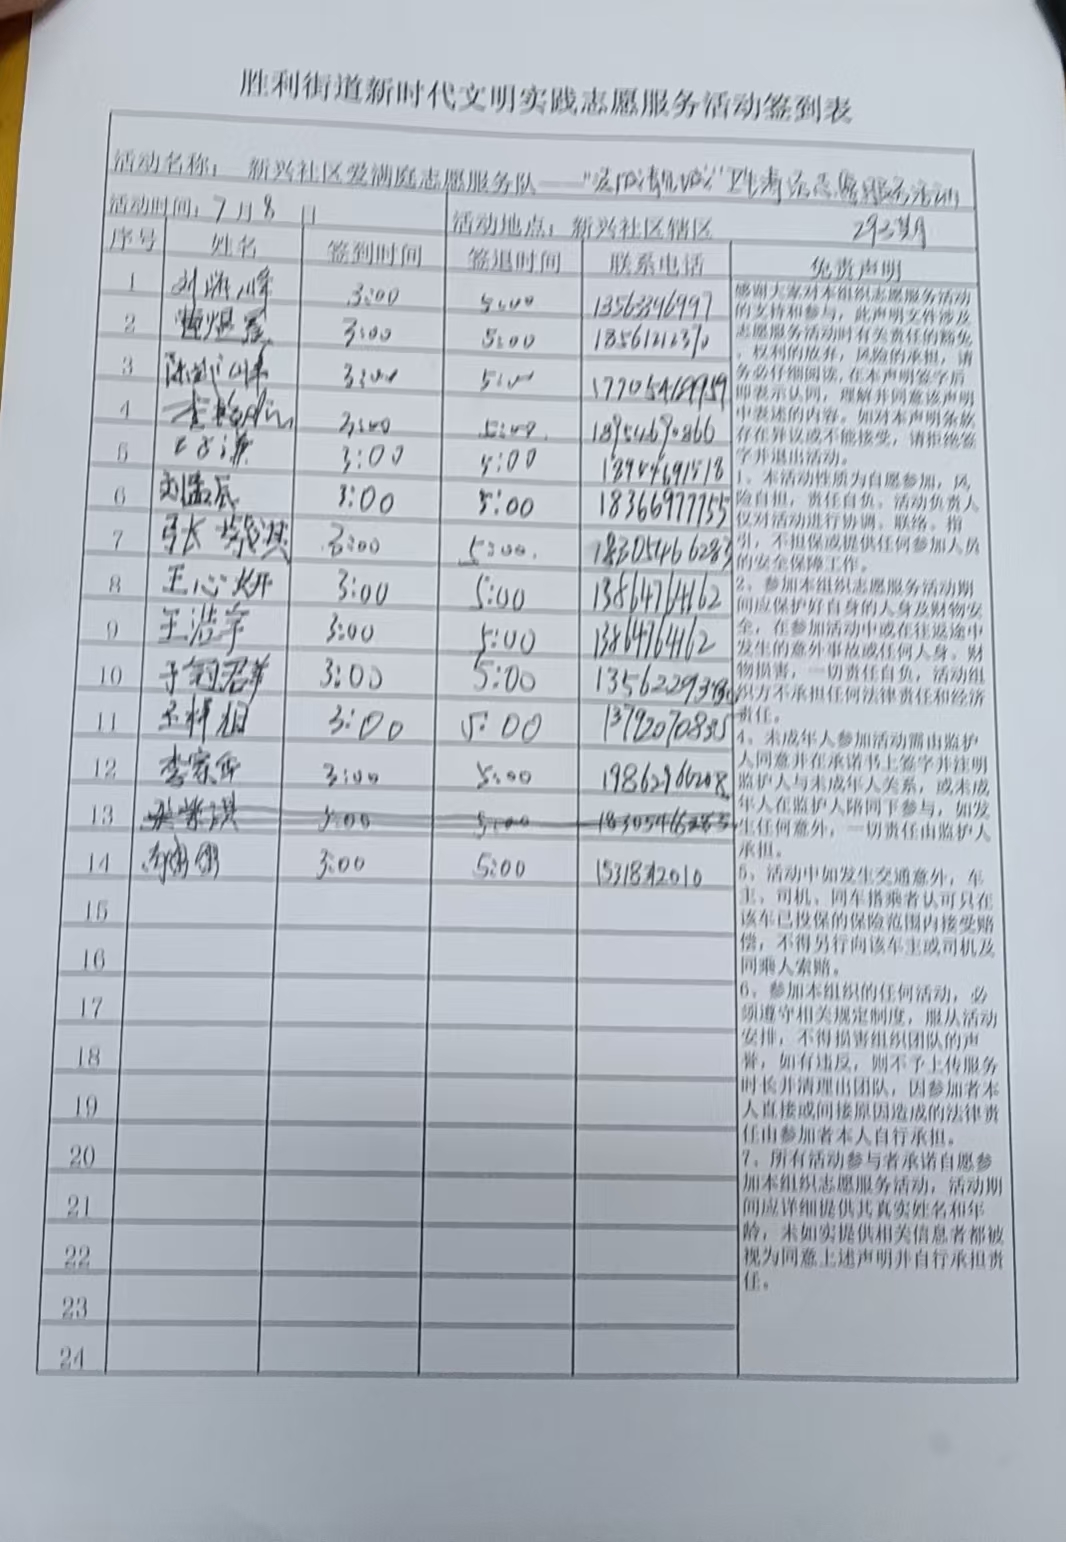 胜利街道新时代文明实践志愿服务活动签到表
活动名称： 新兴社区爱满庭志愿服务队——志愿服务活动
活动时间：7月8日 活动地点：新兴社区辖区 293期
序号 姓名 签到时间 签退时间 联系电话 免责声明
1 3:00 5:00 1356346997
2 3:00 5:00 1856121370
3 3:00 5:00 17705469959
4 3:00 5:00 18954690866
5 3:00 5:00 18954691518
6 刘孟辰 3:00 5:00 18366977755
7 张紫淇 3:00 5:00 18305466283
8 王心妍 3:00 5:00 13864764162
9 王浩宇 3:00 5:00 13864764162
10 3:00 5:00
11 3:00 5:00 13792070835
12 李家 3:00 5:00 19862960208
13 3:00 5:00
14 3:00 5:00 1531842010
15
16
17
18
19
20
21
22
23
24
感谢大家对本组织志愿服务活动
的支持和参与，此声明文件涉及
志愿服务活动时有关责任的豁免
、权利的放弃，风险的承担，请
务必仔细阅读，在本声明签字后
即表示认同，理解并同意该声明
中表述的内容。如对本声明条款
存在异议或不能接受，请拒绝签
字并退出活动。
1、本活动性质为自愿参加，风
险自担，责任自负。活动负责人
仅对活动进行协调、联络、指
引，不担保或提供任何参加人员
的安全保障工作。
2、参加本组织志愿服务活动期
间应保护好自身的人身及财物安
全，在参加活动中或在往返途中
发生的意外事故或任何人身、财
物损害，一切责任自负，活动组
织方不承担任何法律责任和经济
责任。
4、未成年人参加活动需由监护
人同意并在承诺书上签字并注明
监护人与未成年人关系，或未成
年人在监护人陪同下参与，如发
生任何意外，一切责任由监护人
承担。
5、活动中如发生交通意外，车
主、司机、同车搭乘者认可只在
该车已投保的保险范围内接受赔
偿，不得另行向该车主或司机及
同乘人索赔。
6、参加本组织的任何活动，必
须遵守相关规定制度，服从活动
安排，不得损害组织团队的声
誉，如有违反，则不予上传服务
时长并清理出团队，因参加者本
人直接或间接原因造成的法律责
任由参加者本人自行承担。
7、所有活动参与者承诺自愿参
加本组织志愿服务活动，活动期
间应详细提供其真实姓名和年
龄，未如实提供相关信息者都被
视为同意上述声明并自行承担责
任。